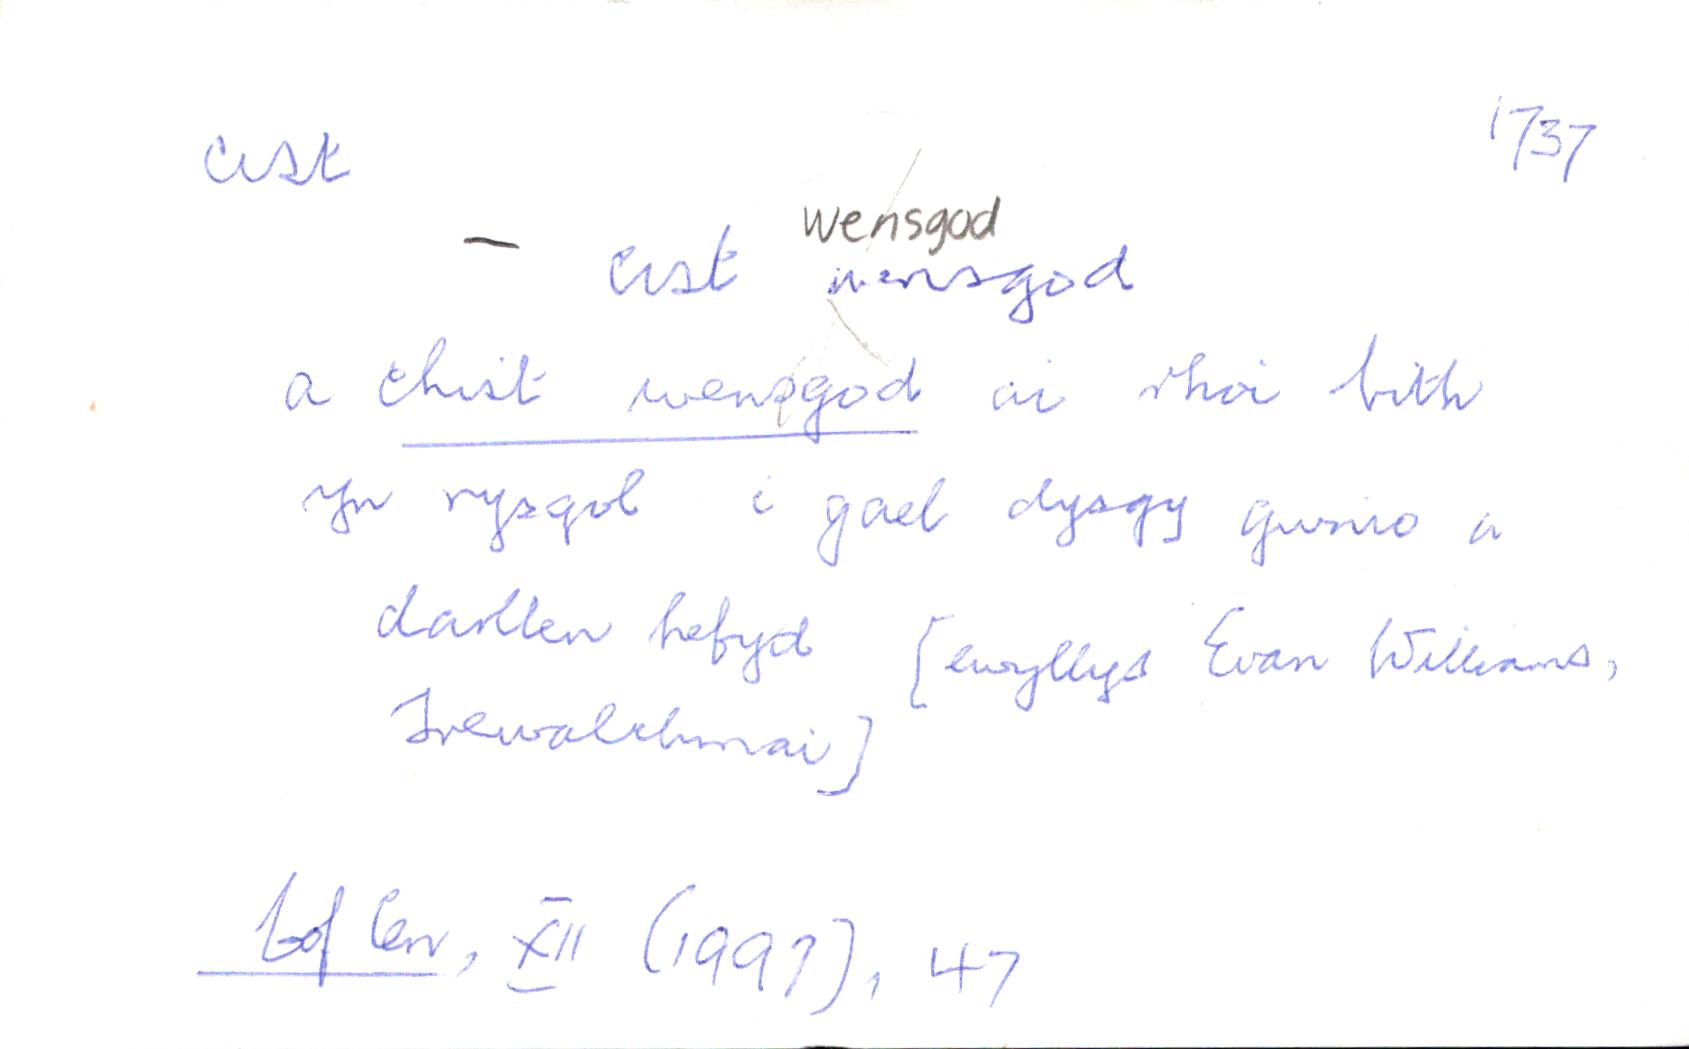 cist 1737
wensgod
— cist wensgod
a chist wensgod ai rhoi bith
yn rysgol i gael dysgy gwnio a
darllen hefyd [ewyllys Evan Williams,
Trewalchmai]
Cof Cen, XII (1997), 47